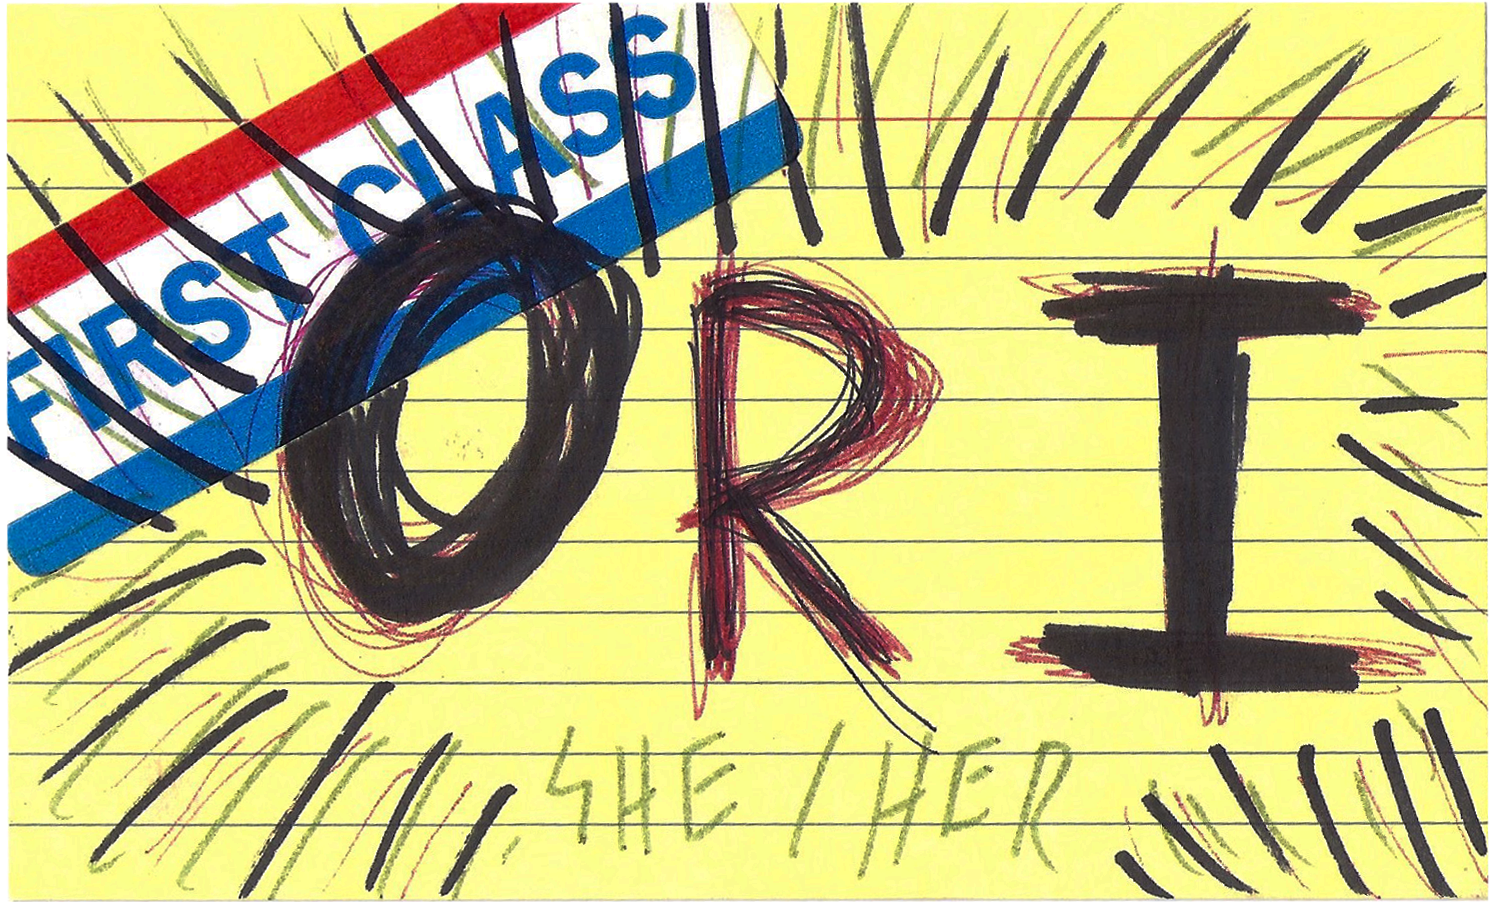 FIRST CLASS
ORI
SHE/HER